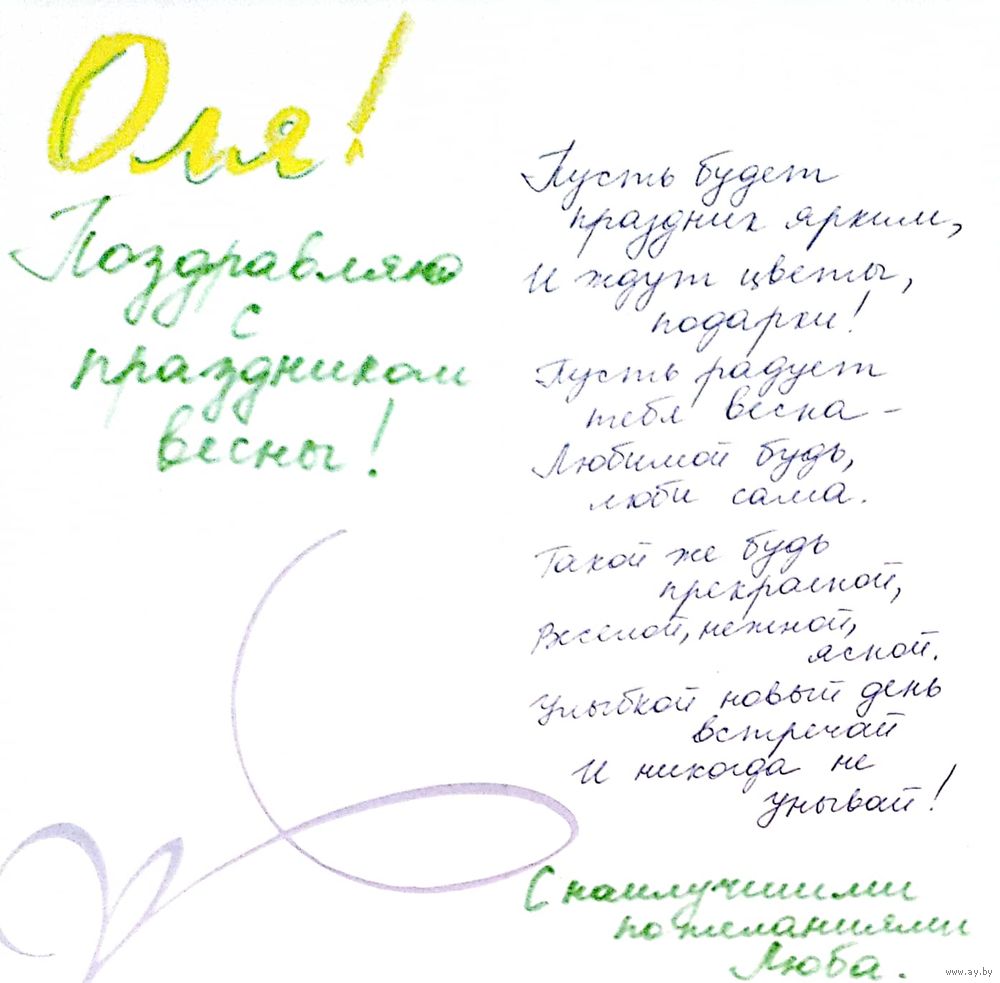 Оля!
Поздравляю
с
праздником
весны!
Пусть будет
праздник ярким,
И ждут цветы,
подарки!
Пусть радует
тебя весна –
Любимой будь,
люби сама.
Такой же будь
прекрасной,
Веселой, нежной,
ясной.
Улыбкой новый день
встречай
И никогда не
унывай!
С наилучшими
пожеланиями
Люба.
www.ay.by